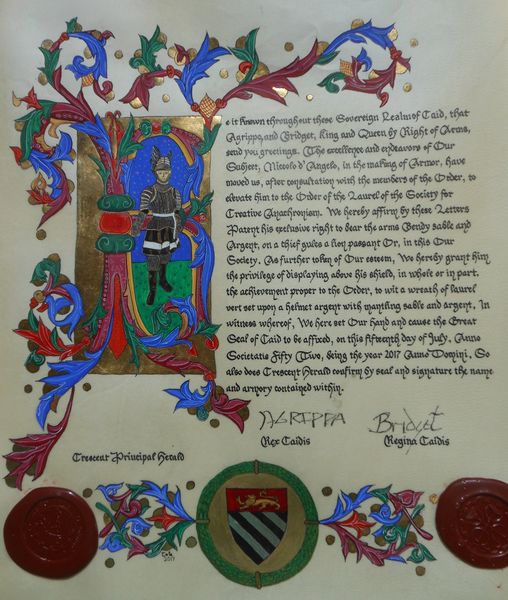 e it known throughout these Sovereign Realms of Caid, that
Agrippa, and Bridget, King and Queen by Right of Arms,
send you greetings. The excellence and endeavors of Our
Subject, Niccolo d'Angelo, in the making of Armor, have
moved us, after consultation with the members of the Order, to
elevate him to the Order of the Laurel of the Society for
Creative Anachronism. We hereby affirm by these Letters
Patent his exclusive right to bear the arms Bendy sable and
Argent, on a chief gules a lion passant Or, in this Our
Society. As further token of Our esteem, We hereby grant him
the privilege of displaying above his shield, in whole or in part,
the achievement proper to the Order, to wit a wreath of laurel
vert set upon a helmet argent with mantling sable and argent. In
witness whereof, We here set Our hand and cause the Great
Seal of Caid to be affixed, on this fifteenth day of July, Anno
Societatis Fifty Two, being the year 2017 Anno Domini. So
also does Crescent Herald confirm by seal and signature the name
and armory contained within.
AGRIPPA Bridget
Rex Caidis Regina Caidis
Crescent Principal Herald
2017